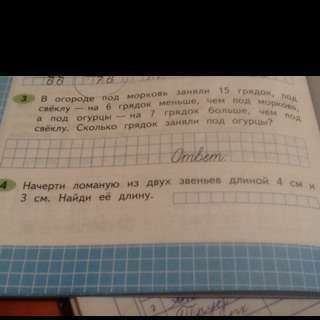 3 В огороде под морковь заняли 15 грядок, под
свёклу — на 6 грядок меньше, чем под морковь,
а под огурцы — на 7 грядок больше, чем под
свёклу. Сколько грядок заняли под огурцы?
Ответ:
4 Начерти ломаную из двух звеньев длиной 4 см и
3 см. Найди её длину.